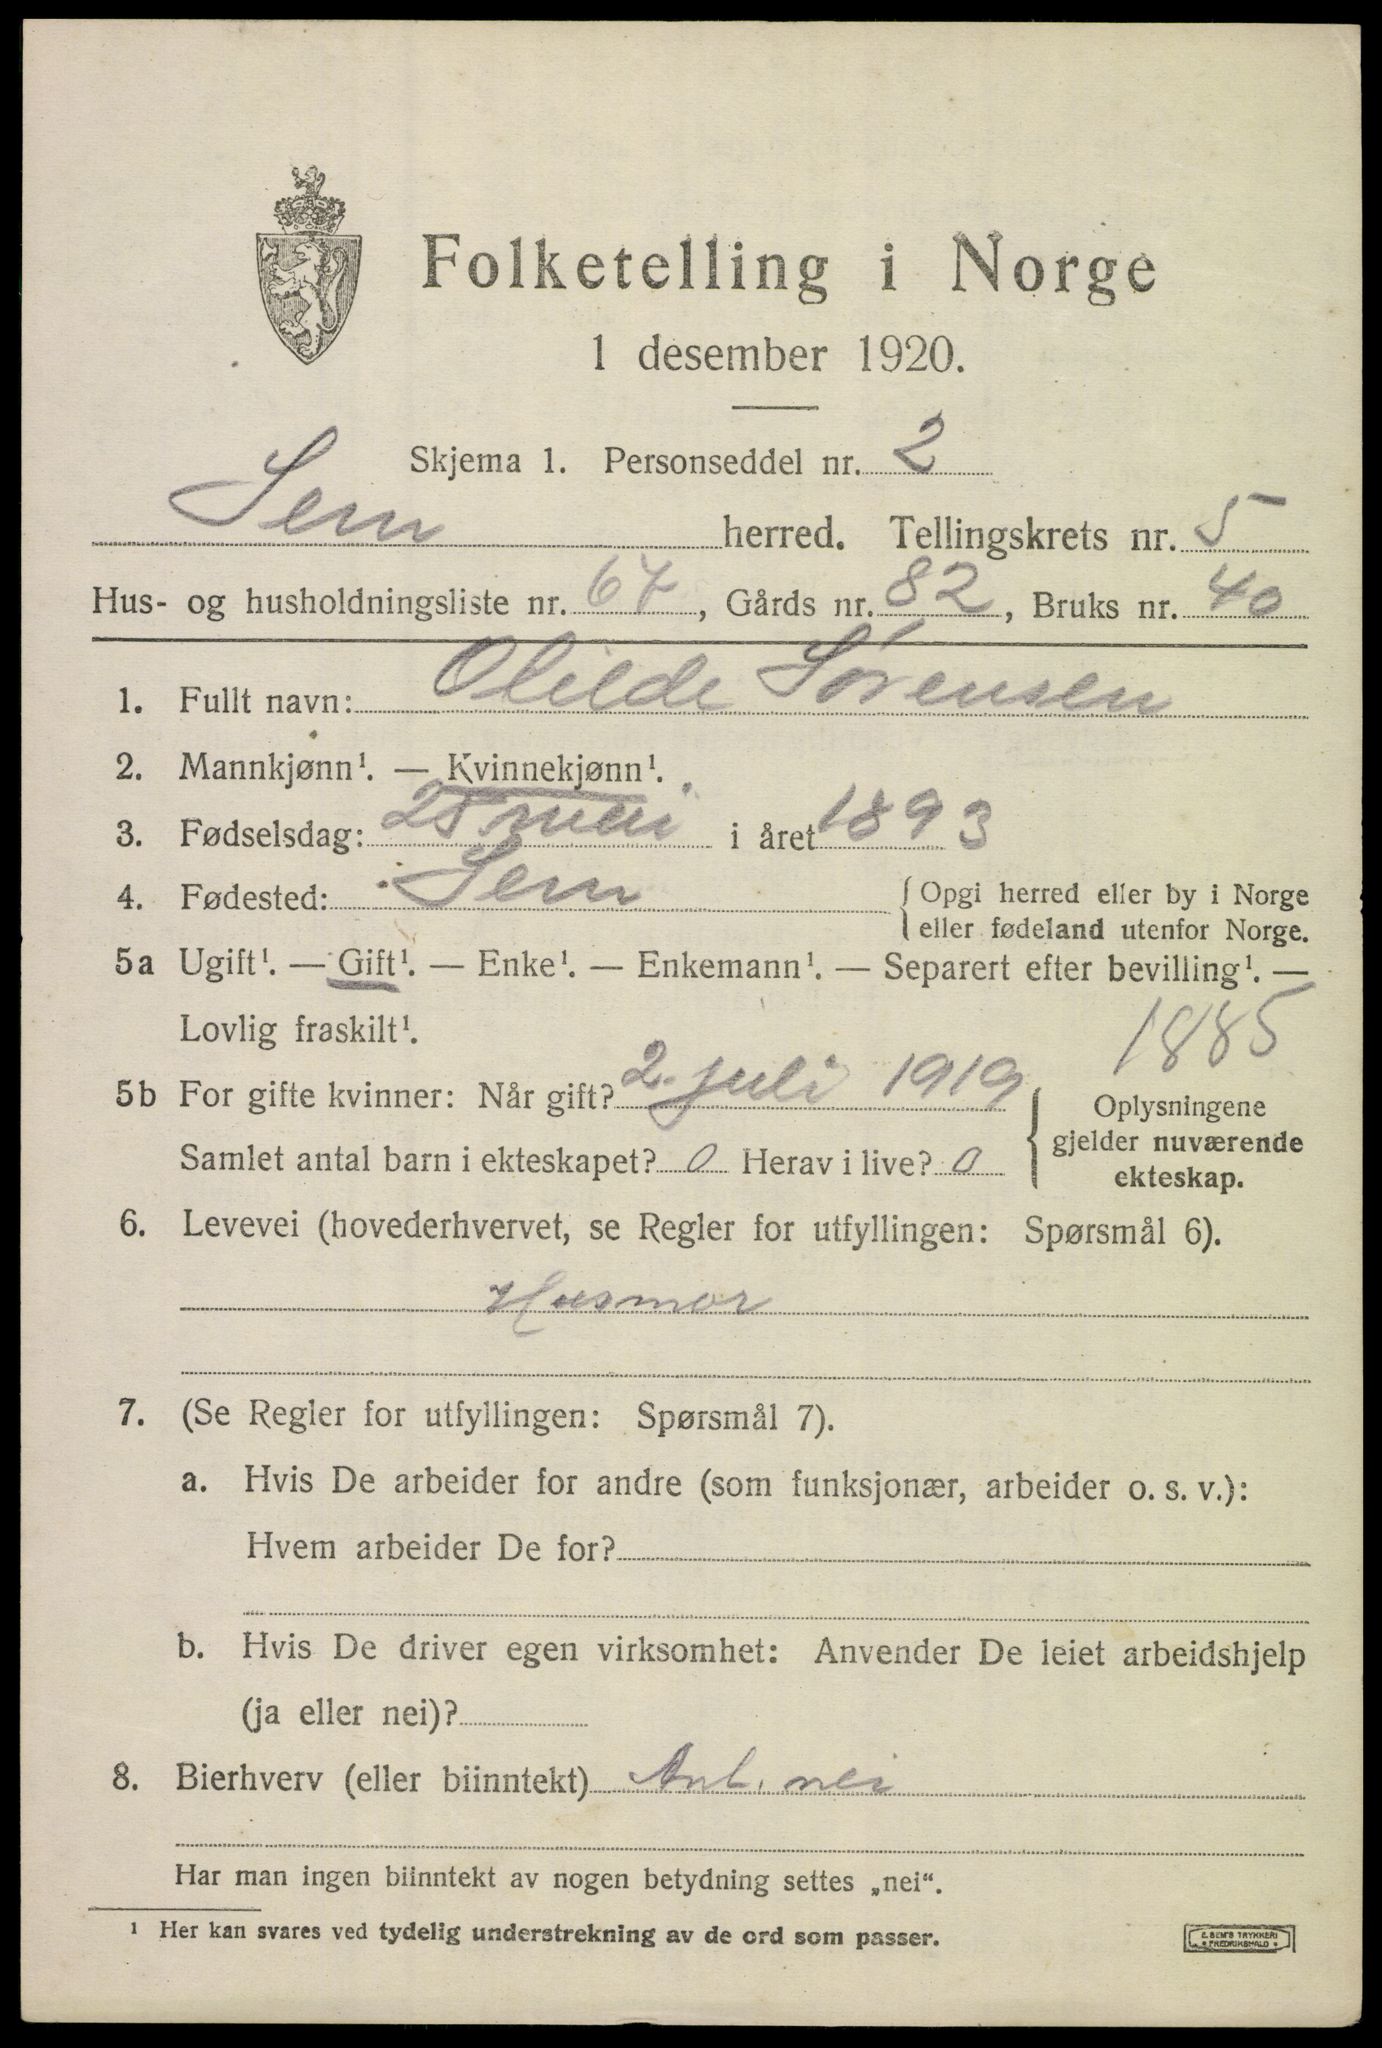 Folketelling i Norge
1 desember 1920.
Skjema 1. Personseddel nr. 2
Sem herred. Tellingskrets nr. 5
Hus- og husholdningsliste nr. 67, Gårds nr. 82, Bruks nr. 40
1. Fullt navn: Olilde Sørensen
2. Mannkjønn¹. — Kvinnekjønn¹.
3. Fødselsdag: 25 mai i året 1893
4. Fødested: Sem {Opgi herred eller by i Norge
eller fødeland utenfor Norge.
5a Ugift¹. — Gift¹. — Enke¹. — Enkemann¹. — Separert efter bevilling¹. —
Lovlig fraskilt¹.
1885
5b For gifte kvinner: Når gift? 2. juli 1919 { Oplysningene
gjelder nuværende
ekteskap.
Samlet antal barn i ekteskapet? 0 Herav i live? 0
6. Levevei (hovederhvervet, se Regler for utfyllingen: Spørsmål 6).
Husmor
7. (Se Regler for utfyllingen: Spørsmål 7).
a. Hvis De arbeider for andre (som funksjonær, arbeider o. s. v.):
Hvem arbeider De for?
b. Hvis De driver egen virksomhet: Anvender De leiet arbeidshjelp
(ja eller nei)?
8. Bierhverv (eller biinntekt) nei
Har man ingen biinntekt av nogen betydning settes „nei“.
¹ Her kan svares ved tydelig understrekning av de ord som passer.
E. SEM'S TRYKKERI
• FREDRIKSHALD •